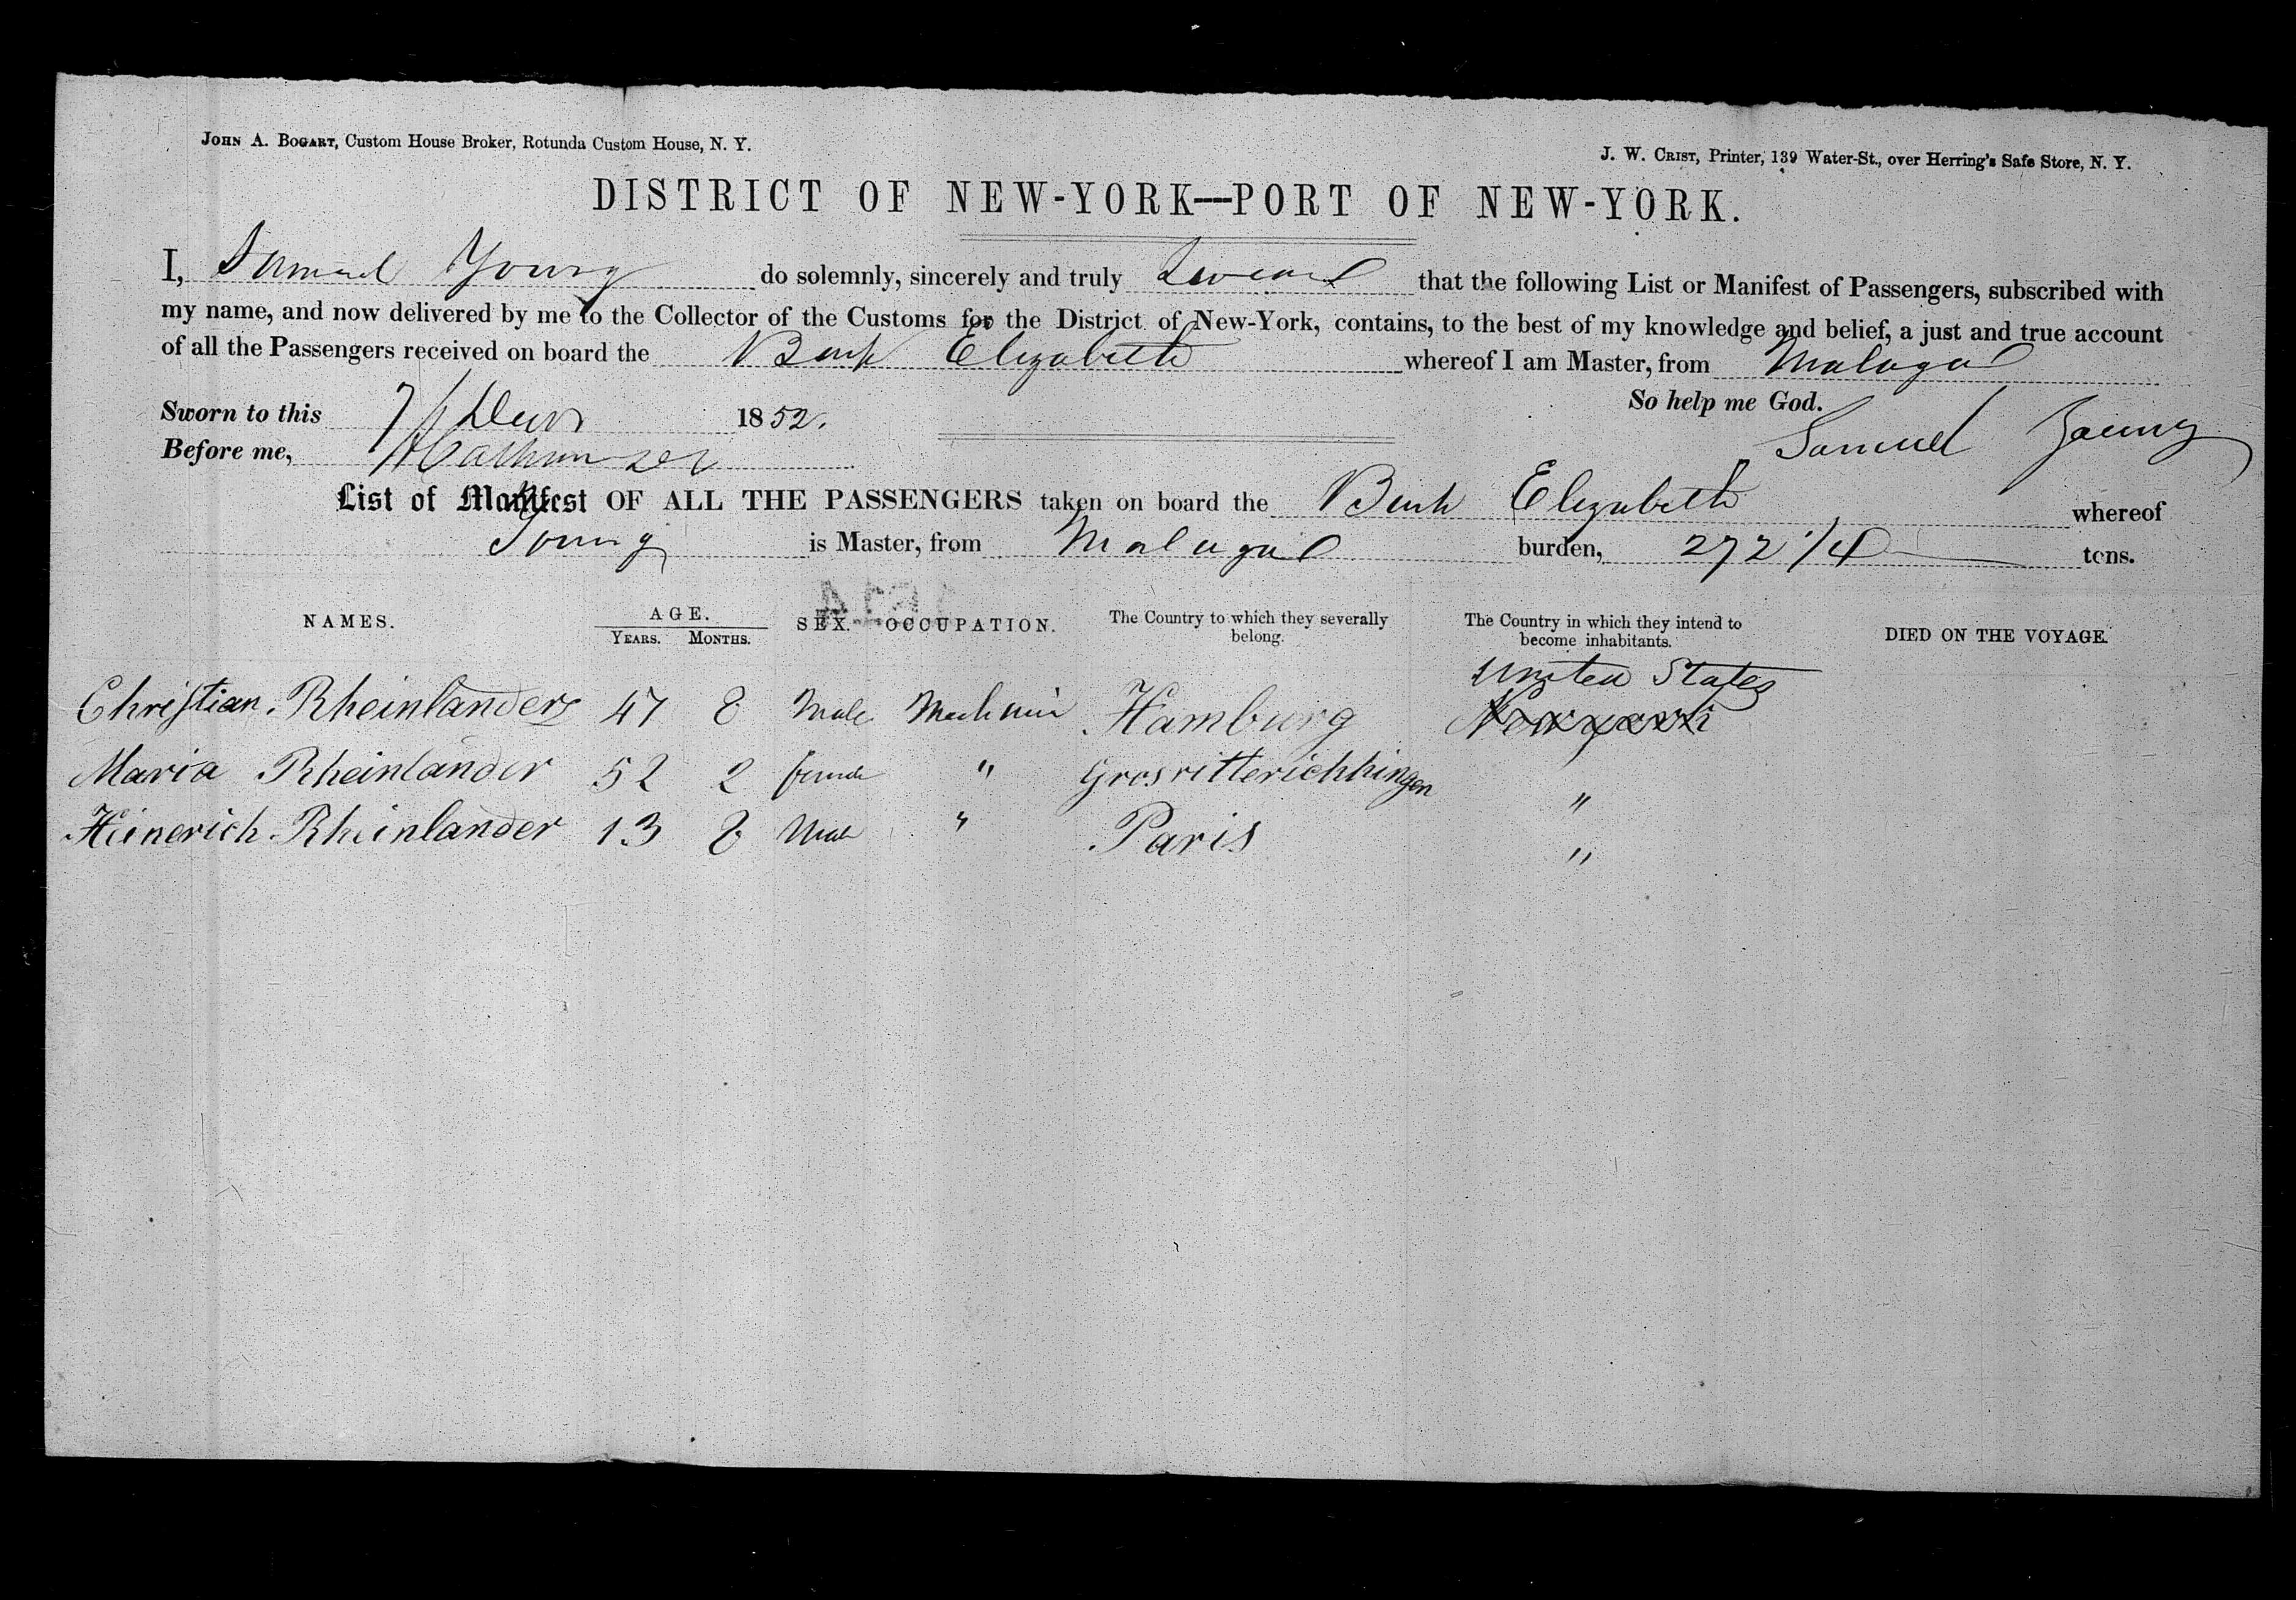 JOHN A. BOGART, Custom House Broker, Rotunda Custom House, N. Y.
J. W. CRIST, Printer, 139 Water-St., over Herring's Safe Store, N. Y.
DISTRICT OF NEW-YORK—PORT OF NEW-YORK.
I, Samuel Young do solemnly, sincerely and truly Swear that the following List or Manifest of Passengers, subscribed with
my name, and now delivered by me to the Collector of the Customs for the District of New-York, contains, to the best of my knowledge and belief, a just and true account
of all the Passengers received on board the Bark Elizabeth whereof I am Master, from Malaga
So help me God.
Sworn to this 7 1852.
Samuel Young
Before me,
List of Manifest OF ALL THE PASSENGERS taken on board the Bark Elizabeth whereof
Young is Master, from Malaga burden, 272 1/4 tons.
NAMES. AGE. YEARS. MONTHS. SEX. OCCUPATION. The Country to which they severally belong. The Country in which they intend to become inhabitants. DIED ON THE VOYAGE.
United States
Christian Rheinlander 47 8 Male Hamburg New york
Maria Rheinlander 52 2 female " Grosritterichhingen "
Heinerich Rheinlander 13 8 Male " Paris "